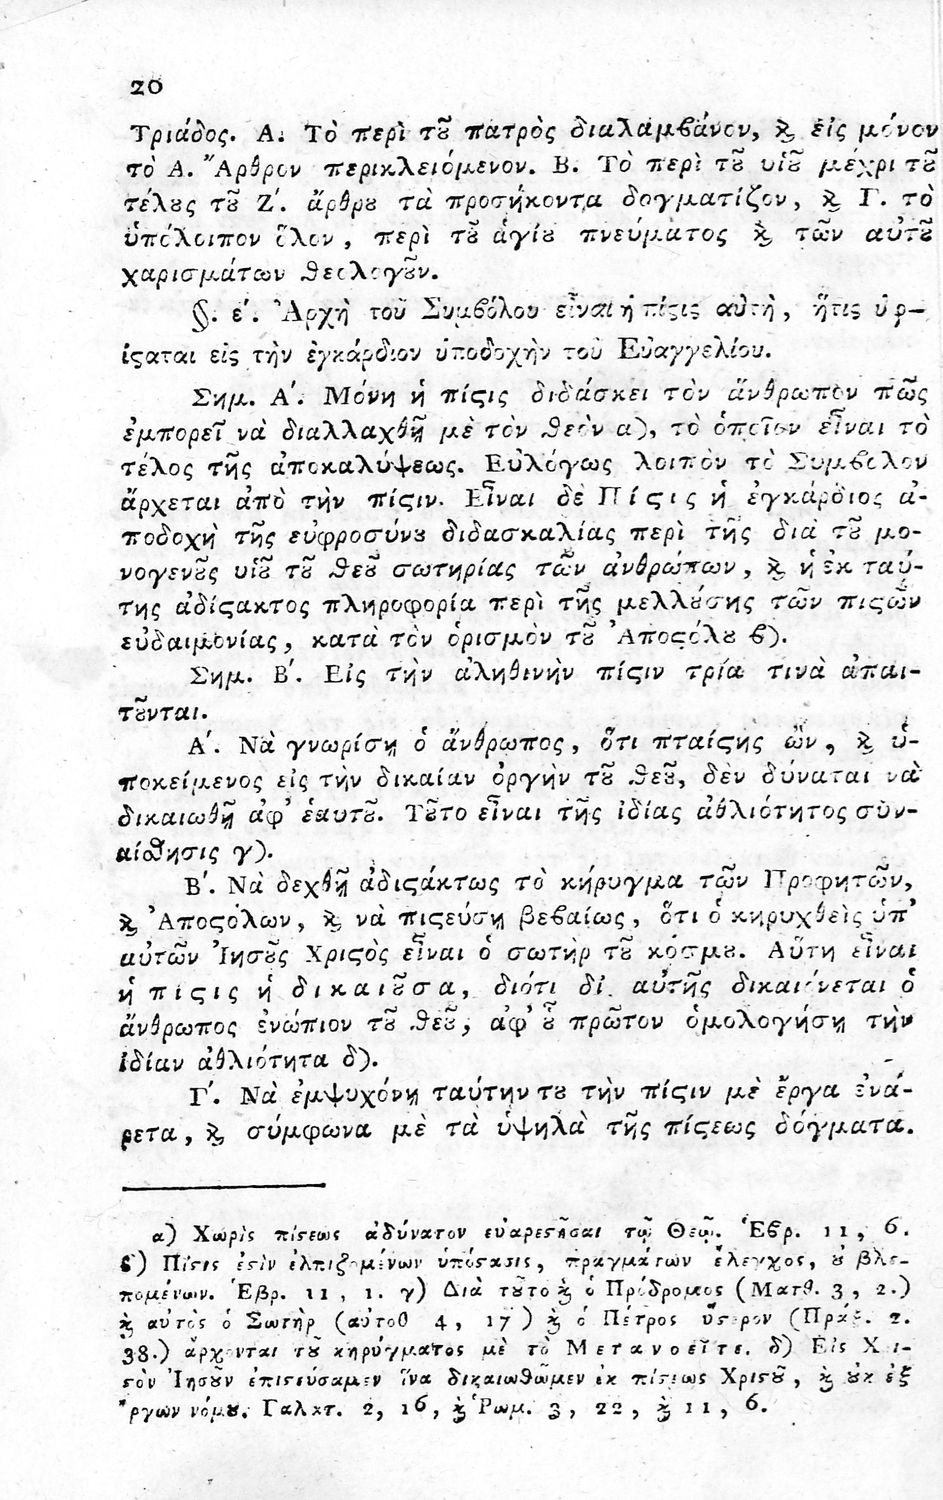 20
Τριάδος. Α. Τὸ περὶ τȣ̃ πατρὸς διαλαμβάνον, ϗ εἰς μόνον
τὸ Α. Ἄρθρον περικλειόμενον. Β. Τὸ περὶ τȣ̃ υἱȣ̃ μέχρι τȣ̃
τέλȣς τȣ̃ Ζ΄. ἄρθρȣ τὰ προσήκοντα δογματίζον, ϗ Γ. τὸ
ὑπόλοιπον ὅλον, περὶ τȣ̃ ἁγίȣ πνεύματος ϗ τῶν αὐτȣ̃
χαρισμάτων θεολογȣ̃ν.
§. ε΄. Ἀρχὴ τοῦ Συμβόλου εἶναι ἡ πίϛις αὐτὴ, ἥτις ὑφ-
ίϛαται εἰς τὴν ἐγκάρδιον ὑποδοχὴν τοῦ Εὐαγγελίου.
Σημ. Α΄. Μόνη ἡ πίϛις διδάσκει τὸν ἄνθρωπον πῶς
ἐμπορεῖ νὰ διαλλαχθῇ μὲ τὸν θεὸν α), τὸ ὁποῖον εἶναι τὸ
τέλος τῆς ἀποκαλύψεως. Εὐλόγως λοιπὸν τὸ Συμβολον
ἄρχεται ἀπὸ τὴν πίϛιν. Εἶναι δὲ Πίϛις ἡ ἐγκάρδιος ἀ-
ποδοχὴ τῆς εὐφροσύνȣ διδασκαλίας περὶ τῆς διὰ τȣ̃ μο-
νογενȣ̃ς υἱȣ̃ τȣ̃ θεȣ̃ σωτηρίας τῶν ἀνθρώπων, ϗ ἡ ἐκ ταύ-
της ἀδίϛακτος πληροφορία περὶ τῆς μελλȣ́σης τῶν πιϛῶν
εὐδαιμονίας, κατὰ τὸν ὁρισμὸν τȣ̃ Ἀποϛόλȣ β).
Σημ. Β΄. Εἰς τὴν ἀληθινὴν πίϛιν τρία τινὰ ἀπαι-
τȣ̃νται.
Α΄. Νὰ γνωρίσῃ ὁ ἄνθρωπος, ὅτι πταίϛης ὢν, ϗ ὑ-
ποκείμενος εἰς τὴν δικαίαν ὀργὴν τȣ̃ θεȣ̃, δὲν δύναται νὰ
δικαιωθῇ ἀφ' ἑαυτȣ̃. Τȣ̃το εἶναι τῆς ἰδίας ἀθλιότητος συν-
αίσθησις γ).
Β΄. Νὰ δεχθῇ ἀδιϛάκτως τὸ κήρυγμα τῶν Προφητῶν,
ϗ Ἀποϛόλων, ϗ νὰ πιϛεύσῃ βεβαίως, ὅτι ὁ κηρυχθεὶς ὑπ'
αὐτῶν Ἰησȣ̃ς Χριϛὸς εἶναι ὁ σωτὴρ τȣ̃ κόσμȣ. Αὕτη εἶναι
ἡ πίϛις ἡ δικαιȣ̃σα, διότι δι' αὐτῆς δικαιόνεται ὁ
ἄνθρωπος ἐνώπιον τȣ̃ θεȣ̃, ἀφ' ȣ̔͂ πρῶτον ὁμολογήσῃ τὴν
ἰδίαν ἀθλιότητα δ).
Γ΄. Νὰ ἐμψυχόνῃ ταύτην τȣ τὴν πίϛιν μὲ ἔργα ἐνά-
ρετα, ϗ σύμφωνα μὲ τὰ ὑψηλὰ τῆς πίϛεως δόγματα.
α) Χωρὶς πίϛεως ἀδύνατον εὐαρεϛῆσαι τῷ Θεῷ. Ἑβρ. 11, 6.
β) Πίϛις ἐϛὶν ἐλπιζομένων ὑπόϛασις, πραγμάτων ἔλεγχος, ȣ̓ βλε-
πομένων. Ἑβρ. 11, 1. γ) Διὰ τȣ̃το ϗ ὁ Πρόδρομος (Ματθ. 3, 2.)
ϗ αὐτὸς ὁ Σωτὴρ (αὐτοθ 4, 17) ϗ ὁ Πέτρος ὕϛερον (Πράξ. 2.
38.) ἄρχονται τȣ̃ κηρύγματος μὲ τὸ Μετανοεῖτε. δ) Εἰς Χρι-
ϛὸν Ἰησȣ̃ν ἐπιϛεύσαμεν ἵνα δικαιωθῶμεν ἐκ πίϛεως Χριϛȣ̃, ϗ ȣ̓κ ἐξ
ἔργων νόμȣ. Γαλατ. 2, 16, ϗ Ῥωμ. 3, 22, ϗ 11, 6.